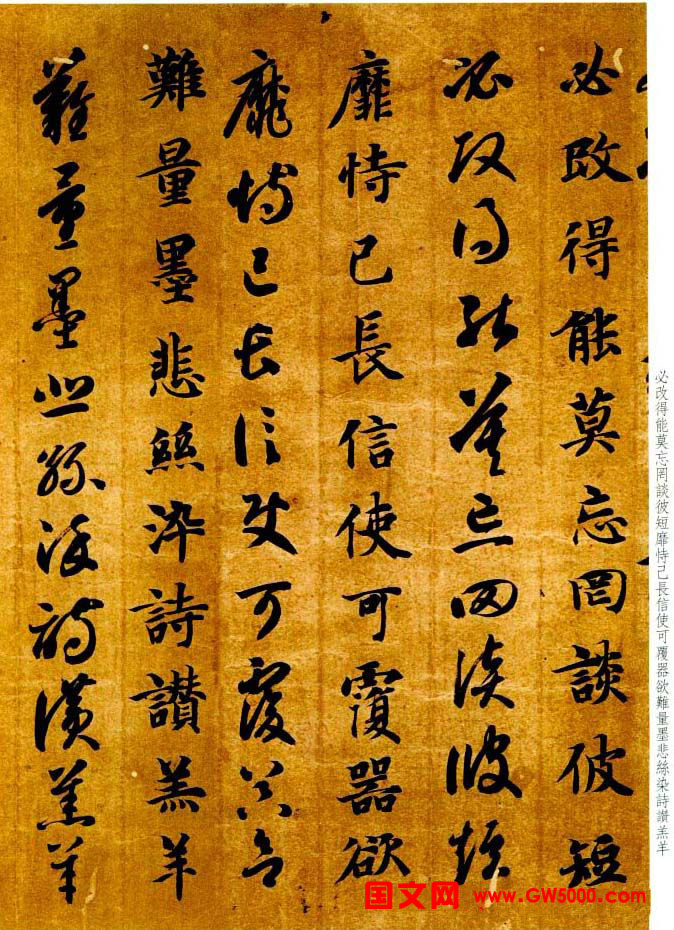 必改得能莫忘罔談彼短靡恃己長信使可覆器欲難量墨悲絲染詩讚羔羊
必改得能莫忘罔談彼短
必改得能莫忘罔談彼短
靡恃己長信使可覆器欲
靡恃己長信使可覆器欲
難量墨悲絲染詩讃羔羊
難量墨悲絲染詩讃羔羊
国文网 www.GW5000.com